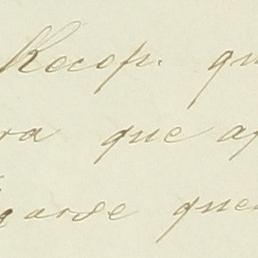 Recop. qu
ra que ap
garde que